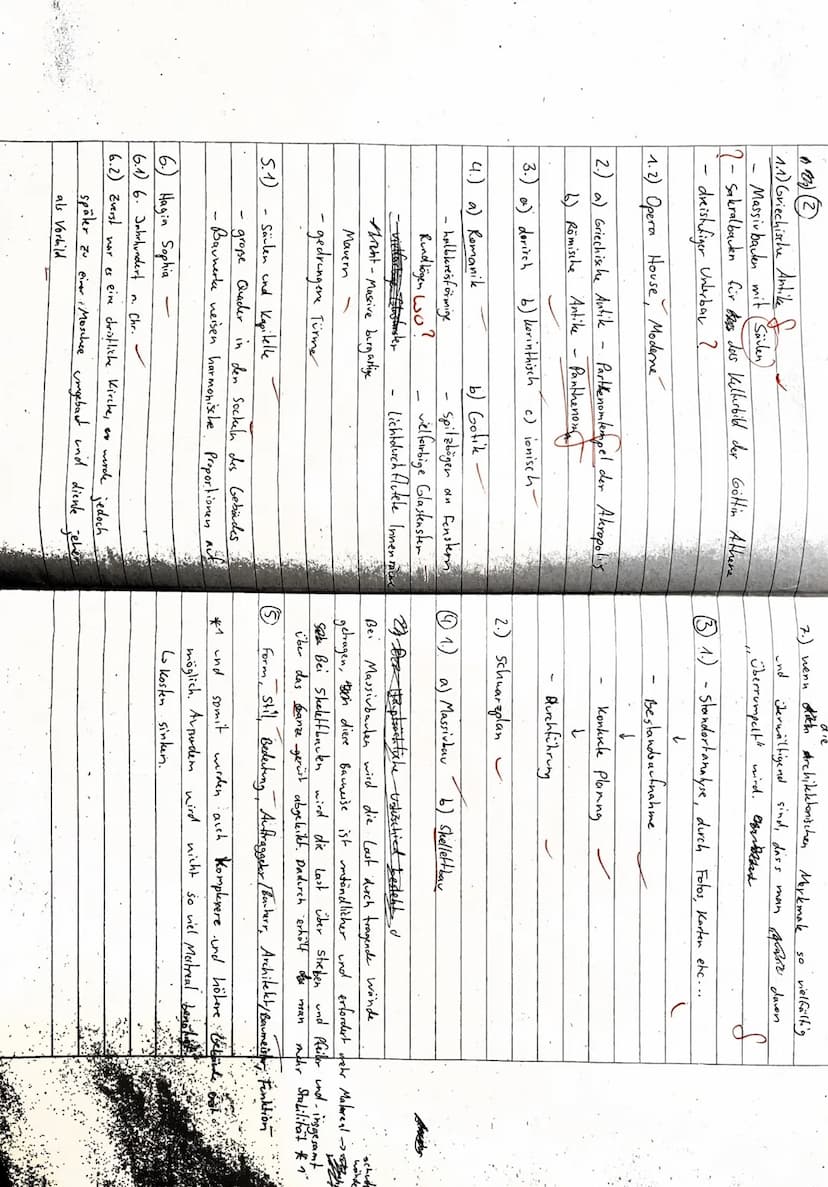 ②
1.1) Griechische Antike
- Massivbauten mit Säulen
? - Sakralbauten für das Kulturbild der Göttin Athene
- dreistufiger Unterbau ?
1.2) Opera House, Moderne
2.) a) Griechische Antik - Parthenomtempel der Akropolis
b) Römische Antike - Panthenom
3.) a) dorisch b) korinthisch c) ionisch
4.) a) Romanik b) Gotik
- halbkreisförmige - spitzbögen an Fenstern
Rundbögen wo? - vielfarbige Glasfenster
- lichtdurchflutete Innenräume
- Massive burgartige
Mauern
- gedrungene Türme
5.1) - Säulen und Kapitelle
- große Quader in den Sockeln des Gebäudes
- Bauwerke weisen harmonische Proportionen auf
6.) Hagia Sophia
6.1) 6. Jahrhundert n. Chr.
6.2) zuerst war es eine christliche Kirche, es wurde jedoch
später zu einer Moschee umgebaut und diente jeher
als Vorbild
7.) wenn die Architektonischen Merkmale so vielfältig
und überwältigend sind, dass man davon
„überrumpelt" wird.
③ 1.) - Standortanalyse, durch Fotos, Karten etc...
↓
- Bestandsaufnahme
↓
- Konkrete Planung
↓
- Durchführung
2.) Schwarzplan
④ 1.) a) Massivbau b) Skelettbau
2) Der Hauptsächliche Unterschied besteht d
Bei Massivbauten wird die Last durch tragende Wände
getragen, diese Bauweise ist umständlicher und erfordert mehr Material →
Bei Skelettbauten wird die Last über Streben und Pfeiler und insgesamt
über das ganze gerüst abgeleitet. Dadurch erhält man mehr Stabilität *1
⑤ Form, Still, Bedeutung, Auftraggeber/Bauherr, Architekt/Baumeister, Funktion
*1 und somit werden auch Komplexere und höhere
möglich. Ausserdem wird nicht so viel Matreal benötigt
↳ Kosten sinken.